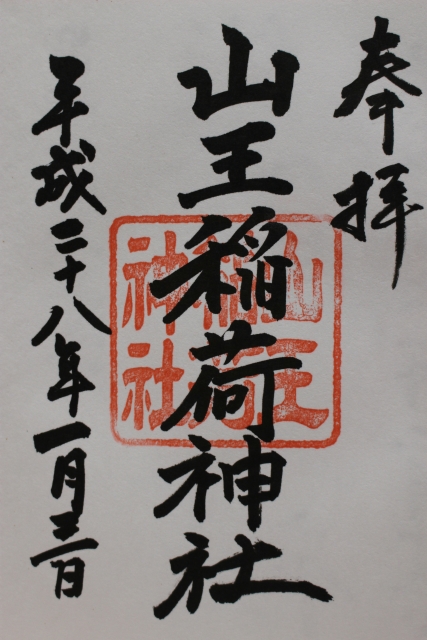 奉拝
山王稲荷神社
山王稲荷神社
平成二十八年一月三日